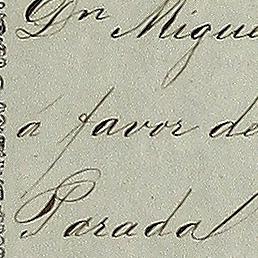 Dn Migue
á favor de
Parada